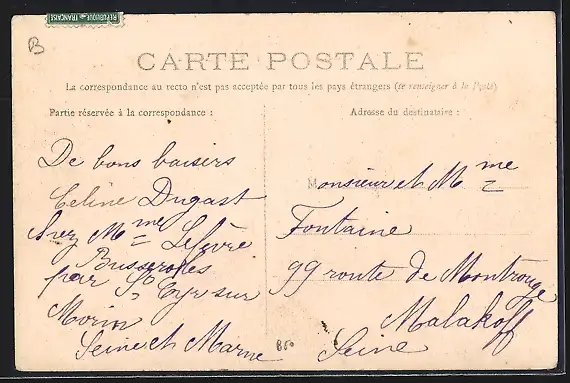 REPUBLIQUE FRANÇAISE
B
CARTE POSTALE
La correspondance au recto n'est pas acceptée par tous les pays étrangers (se renseigner à la Poste)
Partie réservée à la correspondance :
Adresse du destinataire :
De bons baisers
Celine Dugast
chez Mme Lefèvre
Busserolles
par St Cyr sur
Morin
Seine et Marne
Monsieur et Mme
Fontaine
99 route de Montrouge
Malakoff
Seine